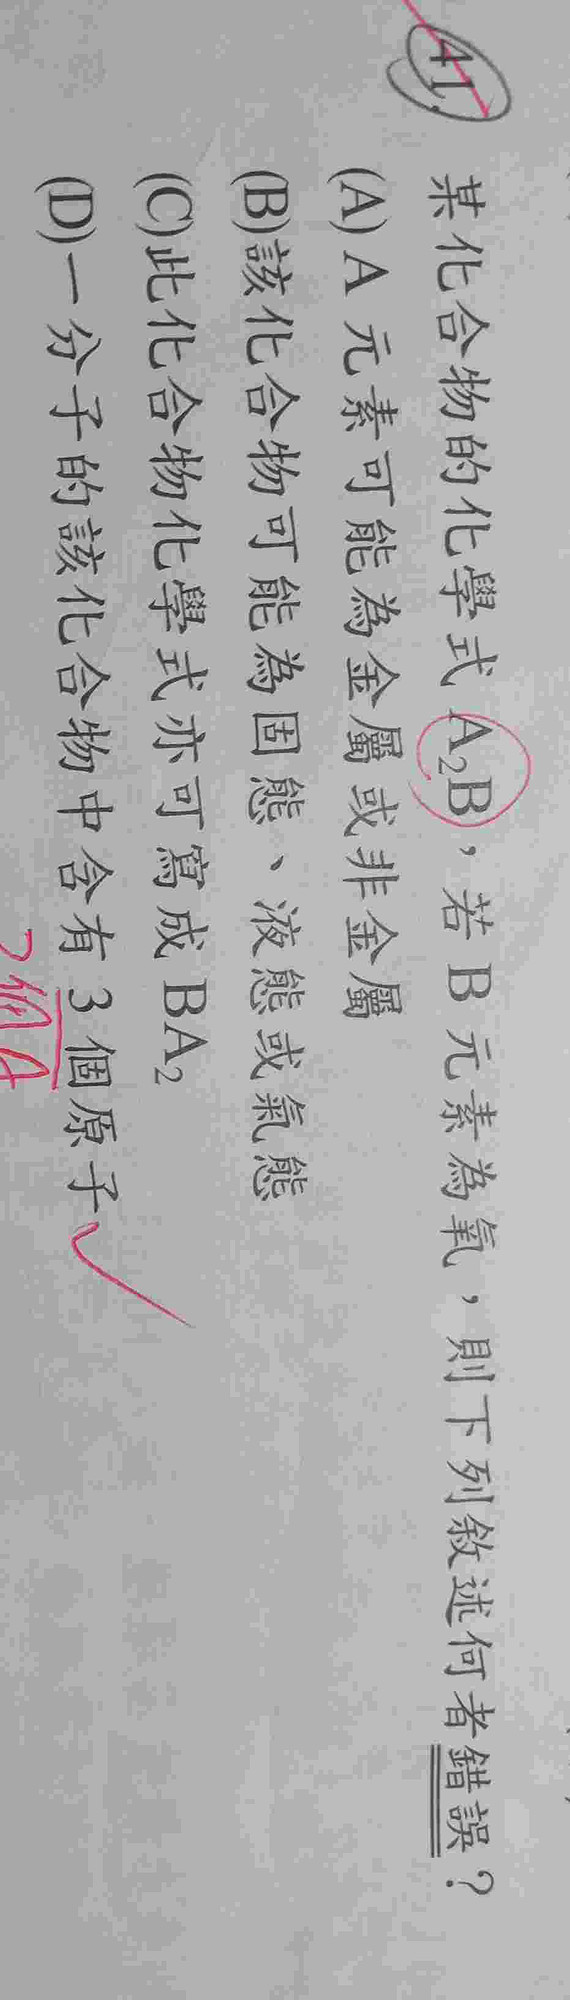 41.
某化合物的化學式 A₂B，若 B 元素為氧，則下列敘述何者錯誤？
(A) A 元素可能為金屬或非金屬
(B)該化合物可能為固態、液態或氣態
(C)此化合物化學式亦可寫成 BA₂
(D)一分子的該化合物中含有 3 個原子
2個A